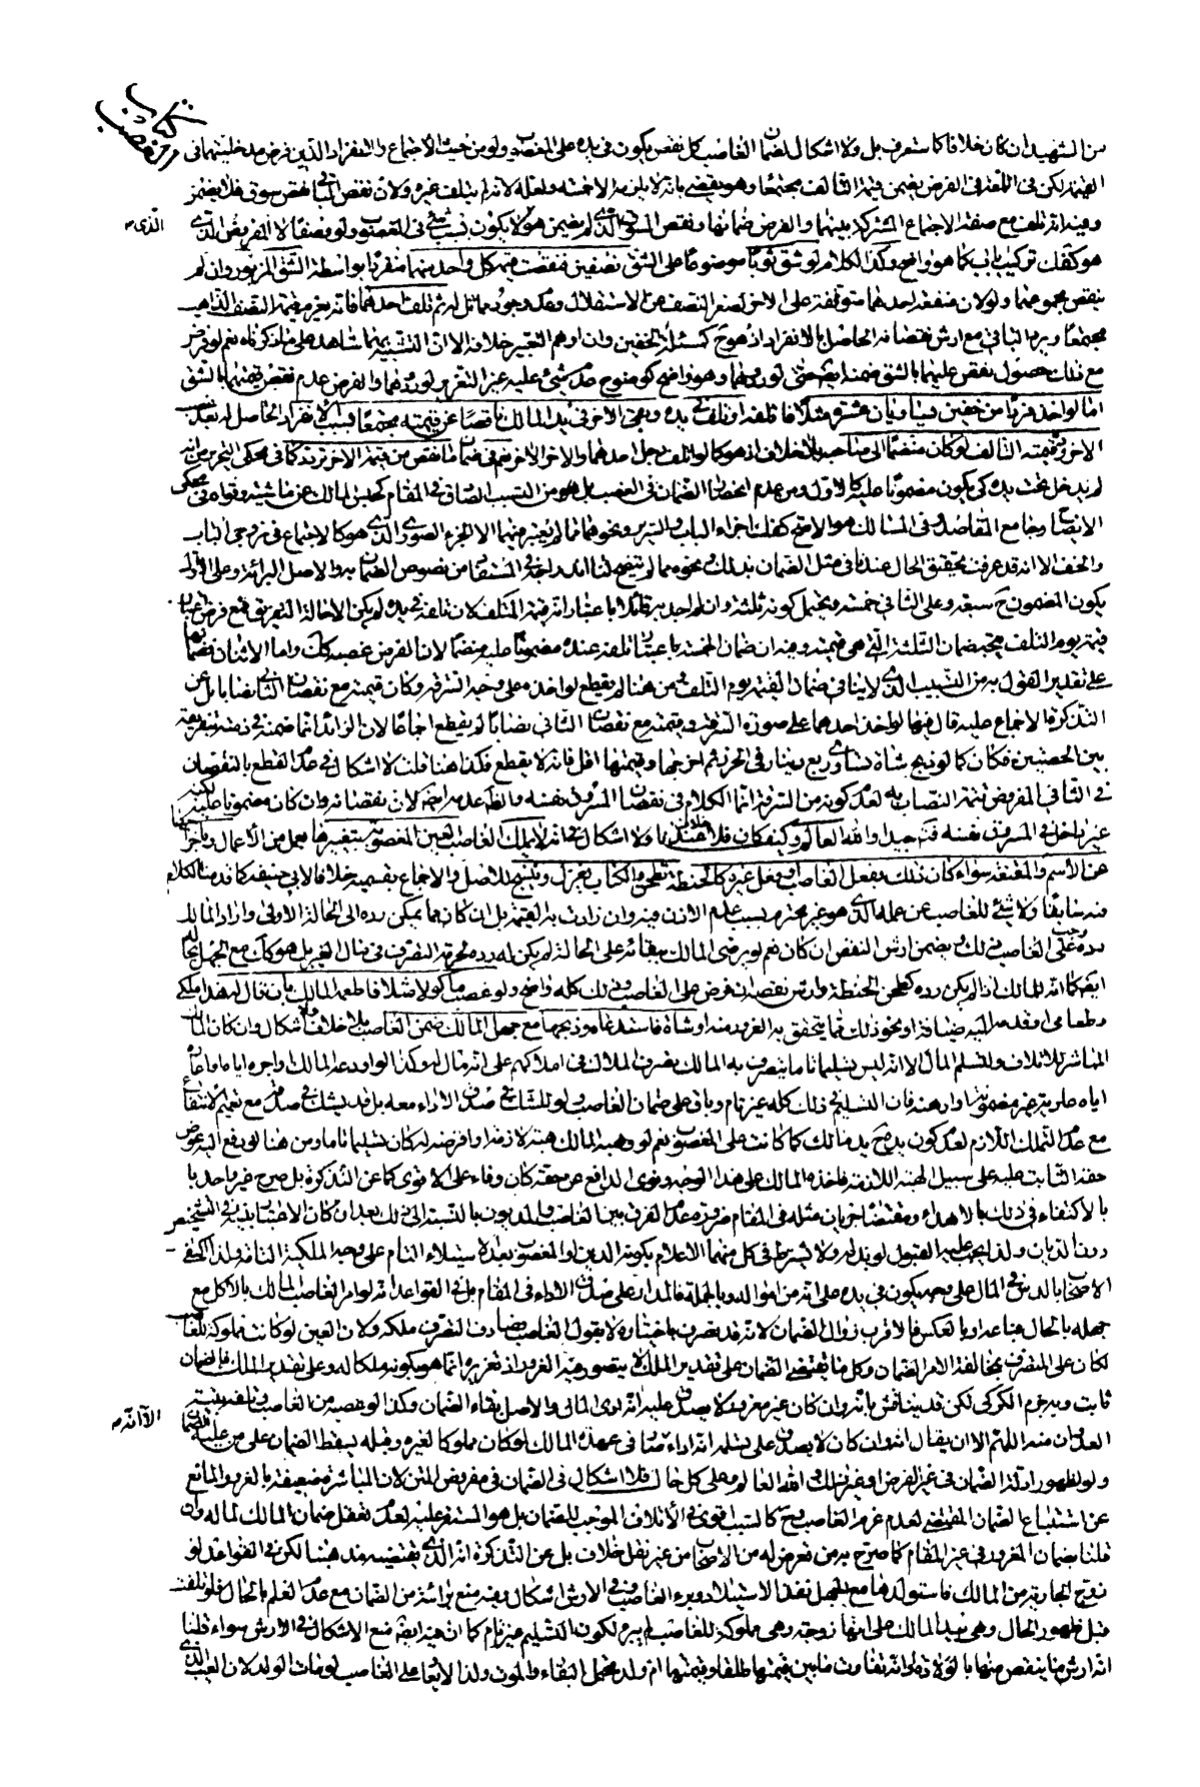 كتاب الغصب
من الشهيد ان كان خلافا كما ستعرف بل ولا اشكال لضمان الغاصب كل نقص يكون في يده على المغصوب ولو من حيث الاجتماع والانفراد الذين فرض مدخليتهما في
القيمة لكن في اللمعة في الفرض يضمن قيمة التالف مجتمعا وهو يقضي بانه لا يلزمه الا خمسة ولعله لانه لم يتلف غيره ولان نقص الباقي نقص سوقي فلا يضمن
وفيه انه تلف مع صفة الاجتماع المشتركة بينهما والفرض ضمانها ونقص السوق الذي لم يضمن هو لا يكون بسبب في المغصوب ولو وصفا كالتفريق الذي
الذي م
هو كفك تركيب باب كما هو واضح وكذا الكلام لو شق ثوبا موضوعا على الشق نصفين فنقصت قيمة كل واحد منهما منفردا بواسطة الشق المزبور وان لم
ينقص مجموعهما ولو لان منفعة احدهما متوقفة على الاخر لصغر النصف عن الاستقلال وعدم وجود مماثل له ثم تلف احدهما فانه يغرم قيمة النصف الذاهب
مجتمعا ويرد الباقي مع ارش نقصانه الحاصل بالانفراد اذ هو ح كمسئلة الخفين وان اوهم التعبير خلافه الا ان التشبيه بهما شاهد على ما ذكرناه نعم لو فرض
مع ذلك حصول نقص عليهما بالشق ضمنه ايضا حتى لو ردهما وهو واضح كوضوح عدم شيء عليه غير التعزير لو ردهما والفرض عدم نقص قيمتهما بالشق
اما لو اخذ فردا من خفين يساويان عشرة مثلا فاتلفه او تلف في يده وبقي الاخر في يد المالك ناقصا عن قيمته مجتمعا بسبب الانفراد الحاصل له بعد
الاخر وقيمته التالف لو كان منضما الى صاحبه بلا خلاف اذ هو كما لو اتلف رجل احدهما والاخر الاخر نعم في ضمان ما نقص من قيمة الاخر تردد كما في محكي التحرير من انه
لم يدخل تحت يده كي يكون مضمونا عليه كالاول ومن عدم انحصار الضمان في الغصب بل هو من التسبيب الصادق في المقام كحبس المالك عن ماشيته وقواه في محكي
الايضاح وجامع المقاصد وفي المسالك هو الاصح كفك اجزاء الباب والسرير ونحوهما مما لم يتغير فيهما الا الجزء الصوري الذي هو كالاجتماع في زوجي الباب
والخف الا انه قد عرفت تحقيق الحال عندنا في مثل الضمان بذلك ونحوه مما لم يتضح لنا اندراجه في المستفاد من نصوص الضمان به والاصل البرائة وعلى الاول
يكون المضمون ح سبعة وعلى الثاني خمسة ويحتمل كونه ثلثة وان لم اجد به قائلا باعتبار انه قيمة المتلف لان تلفه في يده لم يكن الا حالة التفريق فمع فرض
قيمته يوم التلف يتجه ضمان الثلثة التي هي قيمته وفيه ان ضمان الخمسة باعتبار تلفه عنده مضمونا عليه منضما لان الفرض غصبه كك واما الاثنان فضمانهما
على تقدير القول به من التسبيب الذي لا ينافي ضمان القيمة يوم التلف ومن هنا لم يقطع لو اخذه على وجه السرقة وكان قيمته مع نقصان الثاني نصابا بل عن
التذكرة الاجماع عليه قال فيها لو اخذ احدهما على صورة السرقة وقيمته مع نقصان الثاني نصابا لم يقطع اجماعا لان الزائد انما ضمنه في ذمته بتفريقه
بين الخفين فكان كما لو ذبح شاة تساوي ربع دينار في الحرز ثم اخرجها وقيمتها اقل فانه لا يقطع فكذا هنا قلت لا اشكال في عدم القطع بالنقصان
في الثاني المفروض تتمة النصاب به لعدم كونه من السرقة انما الكلام في نقصان المسروق نفسه والظ عدمه ايضا لان نقصانه وان كان مضمونا عليه
غير داخل في المسروق نفسه فت جيدا والله العالم وكيف كان فلا خلاف بل ولا اشكال في انه لا يملك الغاصب العين المغصوبة بتغييرها بعمل من الاعمال وباخراجها
عن الاسم والمنفعة سواء كان ذلك بفعل الغاصب او فعل غيره كالحنطة تطحن والكتاب يغزل وينسج للاصل والاجماع بقسميه خلافا لابي حنيفة كما قدمنا الكلام
فيه سابقا ولا شيء للغاصب عن عمله الذي هو غير محترم بسبب عدم الاذن فيه وان زادت به القيمة بل ان كان مما يمكن رده الى الحالة الاولى واراد المالك
رده وجب على الغاصب ذلك ويضمن ارش النقص ان كان نعم لو رضي المالك ببقائه على الحالة لم يكن له رده لحرمة التصرف في مال الغير بل هو كك مع الجهل بحاله
ايضا كما انه للمالك اذا لم يمكن رده كطحن الحنطة وارش نقصه ان فرض على الغاصب وذلك كله واضح ولو غصب ماكولا مثلا فاطعمه المالك بان قال له هذا ملكي
وطعامي او قدمه اليه ضيافة او نحو ذلك مما يتحقق به الغرور منه او شاة فاستدعاه ذبحها مع جهل المالك ضمن الغاصب بلا خلاف ولا اشكال وان كان المالك
المباشر للاتلاف والمتسلم المال الا انه ليس تسليما تاما يتصرف به المالك تصرف الملاك في املاكهم على انه مال له وكذا لو اودعه المالك او اجره اياه او اعاره
اياه عارية غير مضمونة او ارهنه فان التسليم في ذلك كله غير تام وباق على ضمان الغاصب ولو للشك في صدق الاداء معه بل قد يشك في صدقه مع تعميم الانتفاع
مع عدم التملك اللازم لعدم كون يده ح يد مالك كما كانت على المغصوب نعم لو وهبه المالك هبة لازمة او اقرضه له كان تسليما تاما ومن هنا لو دفع اليه عوض
حقه الثابت عليه على سبيل الهبة اللازمة فاخذه المالك على هذا الوجه ونوى الدافع عن حقه كان وفاء على الاقوى كما عن التذكرة بل صرح غير واحد
بالاكتفاء في ذلك بالاهداء ومقتضاه جريان مثله في المقام ضرورة عدم الفرق بين الغاصب والمديون بالنسبة الى ذلك بعد ان كان الاعتبار بنيته في التشخيص
دون الديان ولذا يجب عليه القبول لو بذله ولا يشترط في كل منهما الاعلام بكونه الدين او المغصوب بعد الاستيلاء التام على وجه الملكية التامة ولذا اكتفى
الاصحاب بالدس في المال على وجه يكون في يده على انه من امواله وبالجملة فالمدار على صدق الاداء في المقام بل في القواعد انه لو امر الغاصب المالك بالاكل مع
جهله بالحال فباعه او بالعكس فالاقرب زوال الضمان لانه قد تصرف باختياره لا بقول الغاصب فصادف التصرف ملكه ولان العين لو كانت مملوكة للغاصب
لكان على المتصرف بمخالفة الامر الضمان وكل ما يقتضي الضمان على تقدير الملك لا يتصور فيه الغرور اذ تغريره انما هو بكونه ملكا له وعلى تقدير الملك فالضمان
ثابت وبه جزم الكركي لكن قد يناقش بانه وان كان غير مغرور لا يصدق عليه انه ادى المال والاصل بقاء الضمان وكذا لو غصبه من الغاصب في نفسه بنية
الا انه م
العدوان منه اللهم الا ان يقال انه وان كان لا يصدق على تسلمه انه اداء منا في عهده المالك لو كان مملوكا لغيره وقبله يسقط الضمان على من عليه الضمان
ولو لظهور ادلة الضمان في غير الفرض او غير ذلك والله العالم وعلى كل حال فلا اشكال في الضمان في مفروض المتن لان المباشرة ضعيفة بالغرور المانع
عن استتباع الضمان المقتضي لعدم غرم الغاصب وح كالسبب اقوى في الاتلاف الموجب للضمان بل هو المستقر عليه لعدم تعقل ضمان المالك لماله وان
قلنا بضمان المغرور في غير المقام كما صرح به من تعرض له من الاصحاب من غير نقل خلاف بل عن التذكرة انه الذي يقتضيه مذهبنا لكن في القواعد لو
زوج الجارية من المالك فاستولدها مع الجهل نفذ الاستيلاد وبرء الغاصب وفي الارش اشكال وفيه منع برائته من الضمان مع عدم العلم بالحال فلو تلفت
قبل ظهور الحال وهي بيد المالك على انها زوجته وهي مملوكة للغاصب لم يبرء لكون التسليم غير تام كما ان فيه ايضا منع الاشكال في الارش سواء قلنا
انه ارش ما ينقص منها بالولادة او انه تفاوت ما بين قيمتها طلقا وقيمتها ام ولد محتمل البقاء والموت ولذا لا يبقى على الغاصب لو مات الولد لان العيب الذي